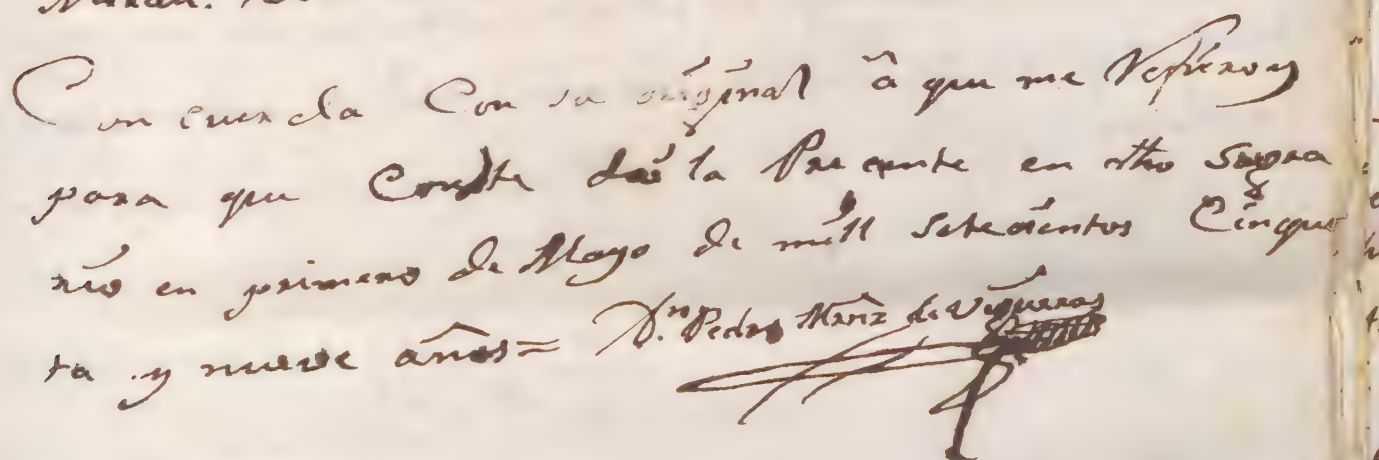 Concuerda Con su original â que me Refiero y
para que Conste doi la Precente en dho Sagra
rio en primero de Mayo de mill setecientos Cinque
ta y nueve años = Dn. Pedro Mrnz de Vigueras